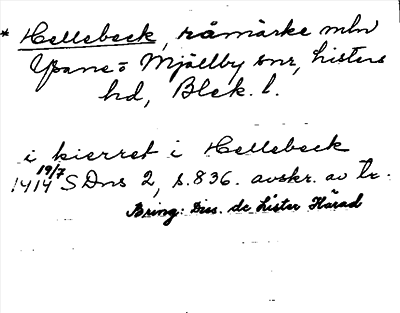 * Hellebeck, råmärke mln
Ysane- o Mjällby snr, Listers
hd, Blek. l.
i kierret i Hellebeck
19/7
1414 SDns 2, s. 836. avskr. av tr.
Bring: Diss. de Lister Härad